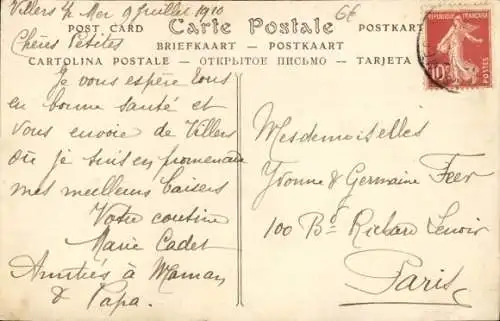 Villers s/ Mer 9 Juillet 1910
66
Carte Postale
POST CARD
POSTKART
BRIEFKAART — POSTKAART
CARTOLINA POSTALE — ОТКРЫТОЕ ПИСЬМО — TARJETA
RÉPUBLIQUE FRANÇAISE
10
POSTES
Chères Petites
Je vous espère tous
en bonne santé et
vous envoie de Villers
où je suis en promenade
mes meilleurs baisers
Votre cousine
Marie Cadet
Amitiés à Maman
& Papa.
Mesdemoiselles
Yvonne & Germaine Feer
100 Bd Richard Lenoir
Paris